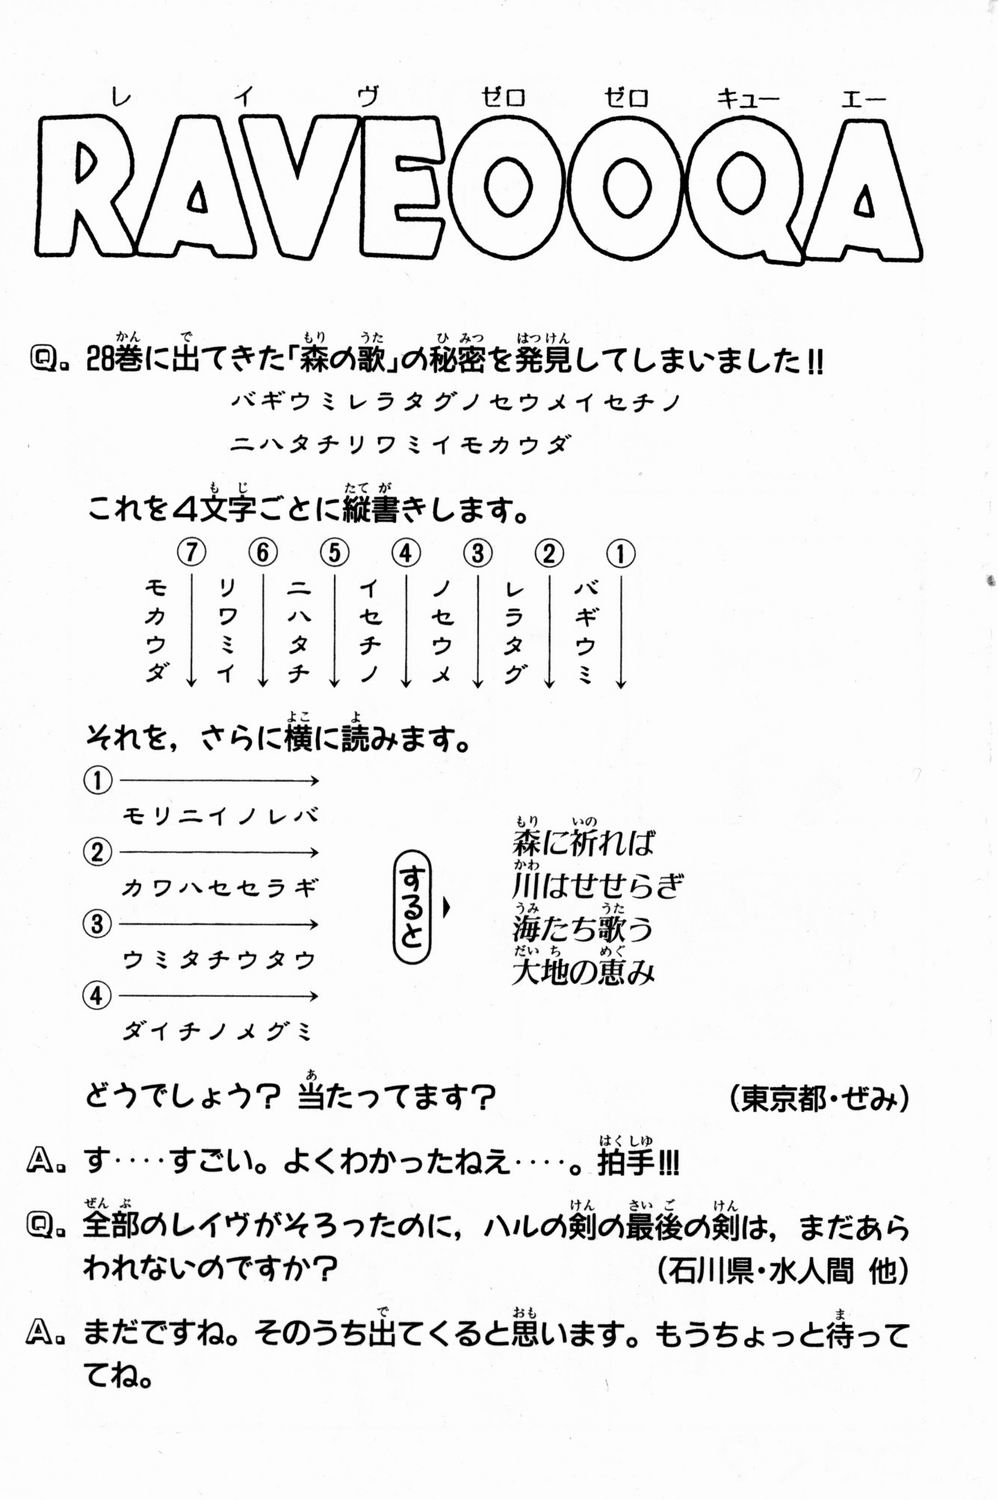 レイヴゼロゼロキューエー
RAVE00QA
Q. 28巻に出てきた「森の歌」の秘密を発見してしまいました!!
バギウミレラタグノセウメイセチノ
ニハタチリワミイモカウダ
これを4文字ごとに縦書きします。
⑦ ⑥ ⑤ ④ ③ ② ①
モ リ ニ イ ノ レ バ
カ ワ ハ セ セ ラ ギ
ウ ミ タ チ ウ タ ウ
ダ イ チ ノ メ グ ミ
それを,さらに横に読みます。
①
モリニイノレバ
②
カワハセセラギ
③
ウミタチウタウ
④
ダイチノメグミ
すると
森に祈れば
川はせせらぎ
海たち歌う
大地の恵み
どうでしょう? 当たってます? (東京都・ぜみ)
A. す‥‥すごい。よくわかったねえ‥‥。拍手!!!
Q. 全部のレイヴがそろったのに,ハルの剣の最後の剣は,まだあら
われないのですか? (石川県・水人間 他)
A. まだですね。そのうち出てくると思います。もうちょっと待って
てね。